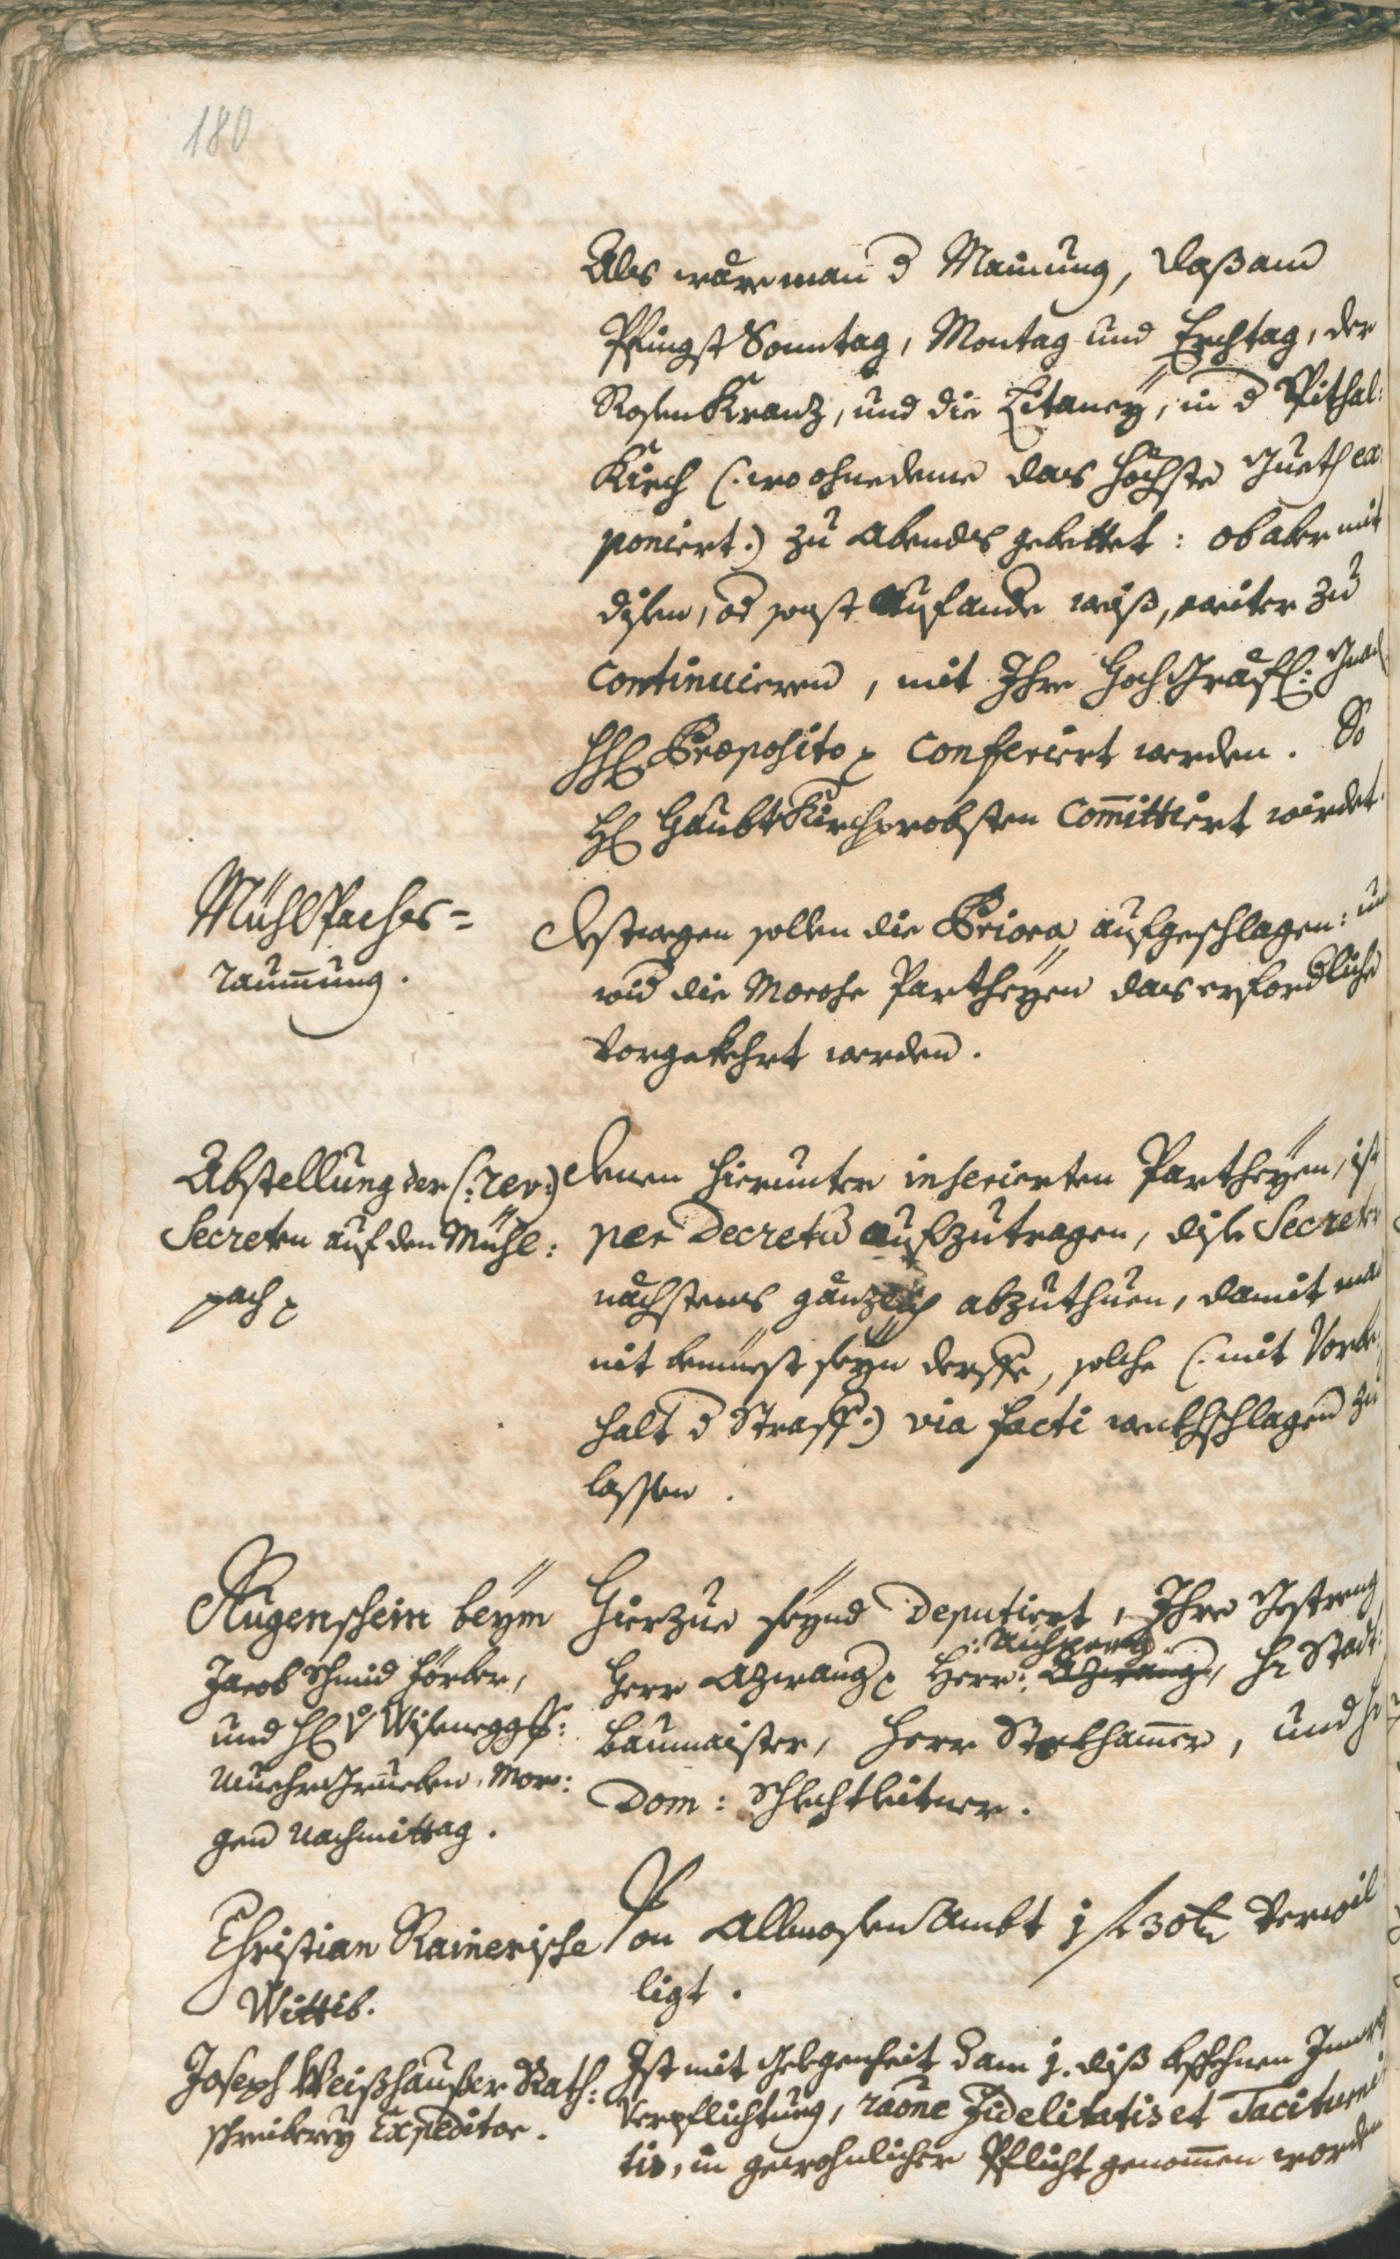 180
Als wäre man d Mainung, daß am
Pfingst Sonntag, Montag und Erchtag, der
RosenKranz, und die Litaney, in d Spithal:
Kirch (: wo ohnedeme das höchste Gueth ex
poniert :) zu Abends gebettet: ob aber mit
disem, od sonst auf ande weiß, weiter zu
continuieren, mit Ihro HochGräfl: Gnad
Praeposito conferiert werden. So
H HaubtKirchprobsten Committiert wirdet.
Mühlpaches=
raumung.
Destwegen sollen die Priora aufgeschlagen: und
wid die Morose Partheyen das erforderliche
vorgekehrt werden.
Abstellung der (: rev:)
Secreten auf den Mühl:
pach
Denen hierunter inserierten Partheyen, ist
per Decretu aufzutragen, dise Secreten
nächstens gänzlich abzuthuen, damit man
nit bemüest seyn derffe, solche (: mit Vorbe
halt d Straff :) via facti wekhschlagen zu
lassen.
Augenschein beym
Jacob Schmid Förber,
und H v
Morgen Nachmittag.
Hierzue seynd Deputiert, Ihro Gestreng
Herr Azwang Herr: Azwang, Hr Stadt:
Baumaister, Herr Stokhamer, und Hr
Dom: Schlechtleitner.
Christian Rainerische
Wittib.
Von Allmosen Ambt 1 f 30 kr verwil
ligt.
Joseph Weißhaußer Rath:
schreiberey Expeditor.
Ist mit Gelegenheit d am 1. diß beschehnen
Verpflichtung, raōne Fidelitatis et Taciturni
tis, in gewohnlicher Pflicht genommen worden